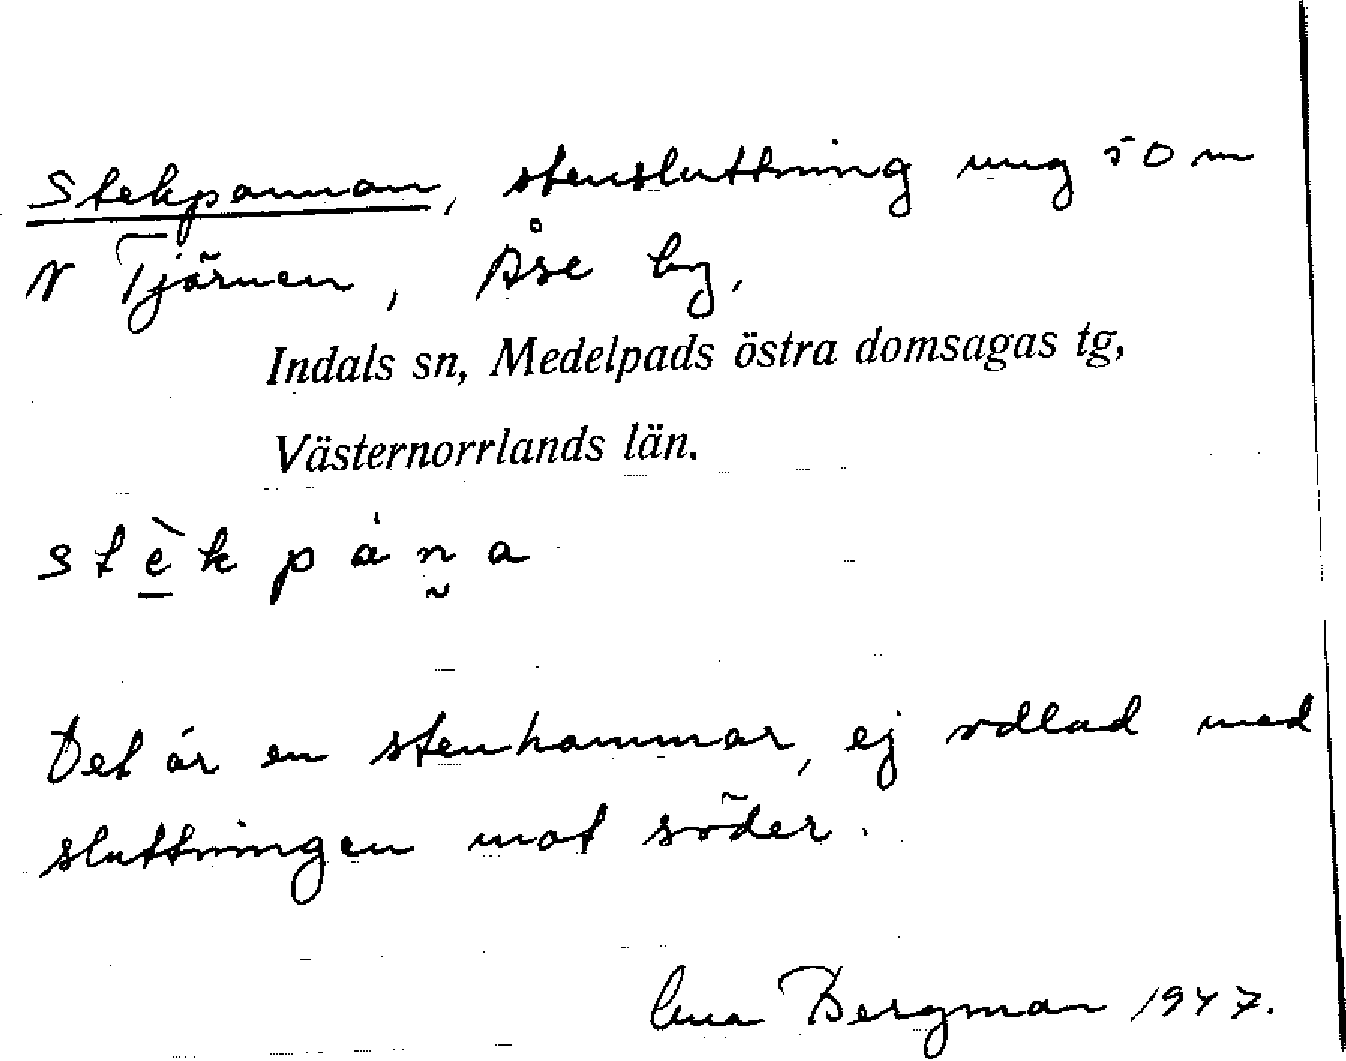 Stekpannan, stensluttning ung 50 m
N Tjärnen, Åse by,
Indals sn, Medelpads östra domsagas tg,
Västernorrlands län.
stè̱kpána
Det är en stenhammar, ej odlad med
sluttningen mot söder.
Bergman 1947.